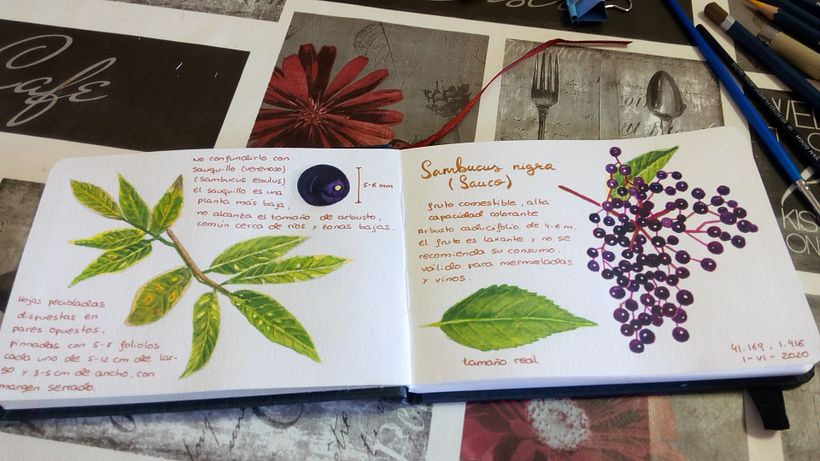 Cafe
No confundirlo con
sauquillo (venenoso)
(Sambucus ebulus)
el sauquillo es una
planta más baja,
no alcanza el tamaño de arbusto,
común cerca de ríos y zonas bajas.
5-6 mm
Hojas pecioladas
dispuestas en
pares opuestos,
pinnadas con 5-7 foliolos
cada uno de 5-12 cm de lar-
go y 3-5 cm de ancho, con
margen serrado.
Sambucus nigra
(Sauco)
fruto comestible, alta
capacidad colorante
Arbusto caducifolio de 4-6 m.
el fruto es laxante y no se
recomienda su consumo.
válido para mermeladas
y vinos.
tamaño real
41.169, 1.416
1-VI-2020
KIS
ON